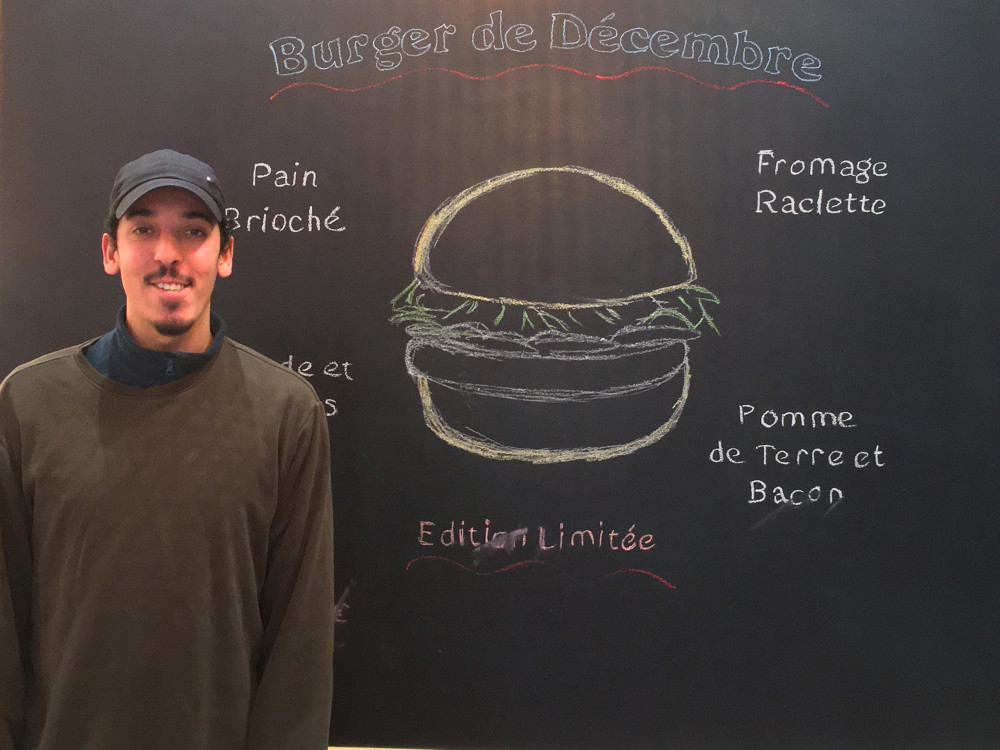 Burger de Décembre
Pain
Brioché
Fromage
Raclette
de et
Pomme
de Terre et
Bacon
Edition Limitée